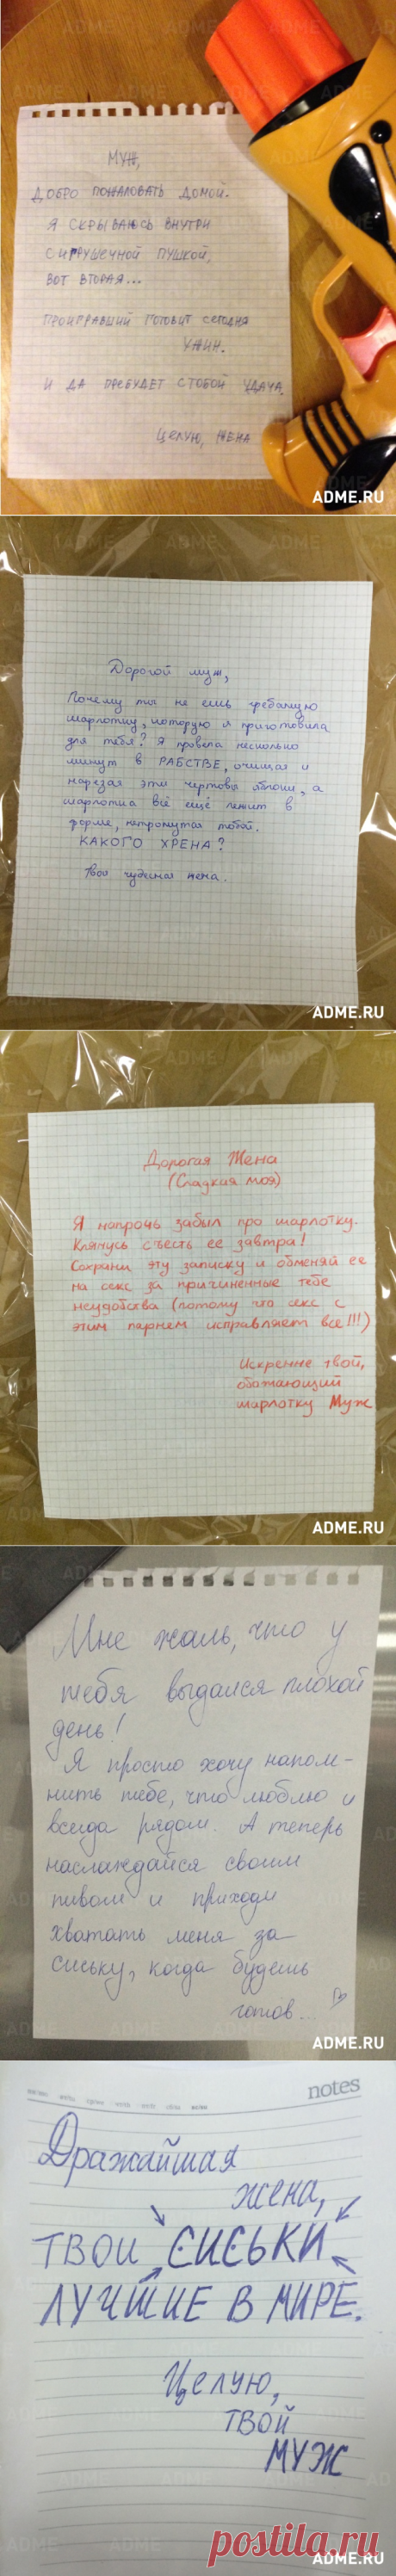 МУЖ,
ДОБРО ПОЖАЛОВАТЬ ДОМОЙ.
Я СКРЫВАЮСЬ ВНУТРИ
С ИГРУШЕЧНОЙ ПУШКОЙ,
ВОТ ВТОРАЯ...
ПРОИГРАВШИЙ ГОТОВИТ СЕГОДНЯ
УЖИН.
И ДА ПРЕБУДЕТ С ТОБОЙ УДАЧА.
ЦЕЛУЮ, ЖЕНА
ADME.RU
Дорогой муж,
Почему ты не ешь гребаную
шарлотку, которую я приготовила
для тебя? Я провела несколько
минут в РАБСТВЕ, очищая и
нарезая эти чертовы яблоки, а
шарлотка всё ещё лежит в
форме, нетронутая тобой.
КАКОГО ХРЕНА?
Твоя чудесная жена.
ADME.RU
Дорогая Жена
(Сладкая моя)
Я напрочь забыл про шарлотку.
Клянусь съесть ее завтра!
Сохрани эту записку и обменяй ее
на секс за причиненные тебе
неудобства (потому что секс с
этим парнем исправляет все!!!)
Искренне твой,
обожающий
шарлотку Муж
ADME.RU
Мне жаль, что у
тебя выдался плохой
день!
Я просто хочу напом-
нить тебе, что люблю и
всегда рядом. А теперь
наслаждайся своим
пивом и приходи
хватать меня за
сиську, когда будешь
готов...
ADME.RU
notes
Дражайшая
жена,
ТВОИ СИСЬКИ
ЛУЧШИЕ В МИРЕ.
Целую,
ТВОЙ
МУЖ
ADME.RU
postila.ru